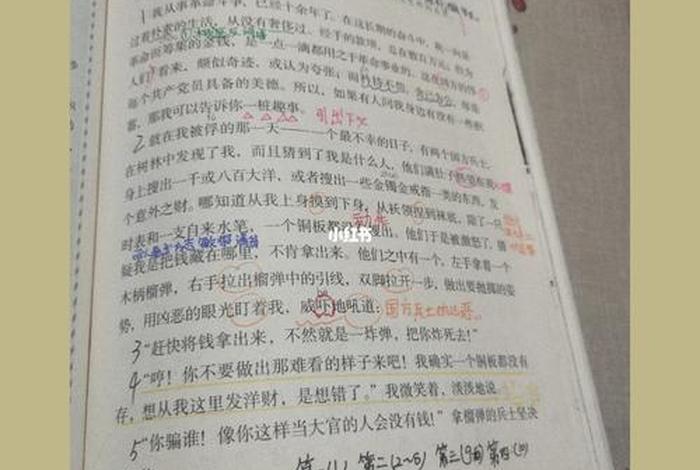 1 我从事革命斗争,已经十余年了。在这长期的奋斗中,我一向是
过着朴素的生活,从没有奢侈过。经手的款项,总在数百万元;但为
革命而筹集的金钱,是一点一滴都用之于革命事业的。这在国方的伟
人们看来,颇似奇迹,或认为夸张;而矜持不苟,舍己为公,却是
每个共产党员具备的美德。所以,如果有人问我身边有没有一些积
蓄,那我可以告诉你一桩趣事。 引出下文
2 就在我被俘的那一天——一个最不幸的日子,有两个国方兵士,
在树林中发现了我,而且猜到了我是什么人,他们满肚子热望在我
身上搜出一千或八百大洋,或者搜出一些金镯金戒指一类的东西,发
个意外之财。哪知道从我上身摸到下身,从袄领捏到袜底,除了一只
时表和一支自来水笔,一个铜板都没有搜出。他们于是被激怒了,猜
动作
小红书
疑我是把钱藏在哪里,不肯拿出来。他们之中有一个,左手拿着一个
木柄榴弹,右手拉出榴弹中的引线,双脚拉开一步,做出要抛掷的姿
势,用凶恶的眼光盯着我,威吓地吼道: 国方兵士的凶恶。
3 “赶快将钱拿出来,不然就是一炸弹,把你炸死去!”
4 “哼!你不要做出那难看的样子来吧!我确实一个铜板都没有
存,想从我这里发洋财,是想错了。”我微笑着,淡淡地说
5 “你骗谁!像你这样当大官的人会没有钱!”拿榴弹的兵士坚决
第一(1) 第二(2~8) 第三(9